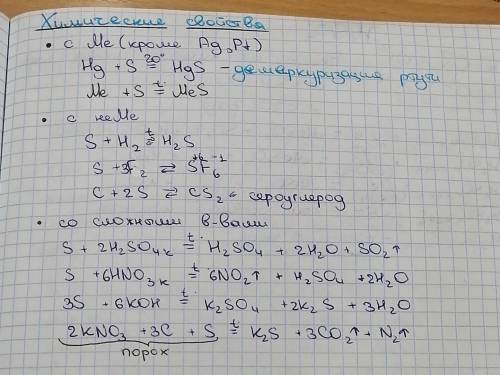 Химические свойства
• с Me (кроме Ag, Pt)
Hg + S 20°= HgS - демеркуризация ртути
Me + S t°= MeS
• с неMe
S + H₂ t⇄ H₂S
S + 3F₂ ⇄ S⁺⁶F₆⁻¹
C + 2S ⇄ CS₂ - сероуглерод
• со сложными в-вами
S + 2H₂SO₄ к t°= H₂SO₄ + 2H₂O + SO₂↑
S + 6HNO₃ к t°= 6NO₂↑ + H₂SO₄ + 2H₂O
3S + 6KOH t°= K₂SO₄ + 2K₂S + 3H₂O
2KNO₃ + 3C + S t°= K₂S + 3CO₂↑ + N₂↑
порох